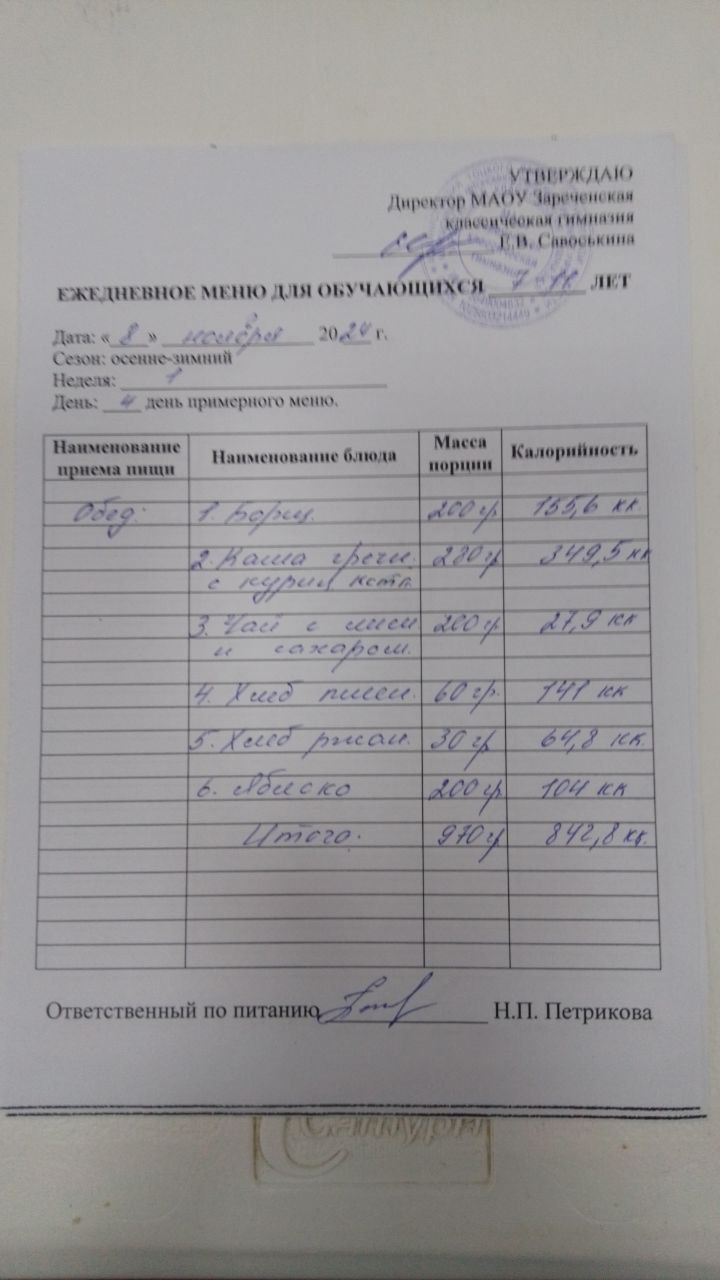 УТВЕРЖДАЮ
Директор МАОУ Зареченская
классическая гимназия
Г.В. Савоськина
ЕЖЕДНЕВНОЕ МЕНЮ ДЛЯ ОБУЧАЮЩИХСЯ 7-11 ЛЕТ
Дата: « 8 » ноября 2024 г.
Сезон: осенне-зимний
Неделя: 1
День: 4 день примерного меню.
Наименование приема пищи Наименование блюда Масса порции Калорийность
Обед: 1. Борщ. 200 гр 155,6 кк
2. Каша гречн. 280 гр 349,5 кк
с курин котл
3. Чай с лим 200 гр 27,9 кк
и сахаром.
4. Хлеб пшен. 60 гр. 141 кк
5. Хлеб ржан. 30 гр 64,8 кк.
6. Яблоко 200 гр 104 кк
Итого: 970 гр 842,8 кк.
Ответственный по питанию Н.П. Петрикова
Сатурн